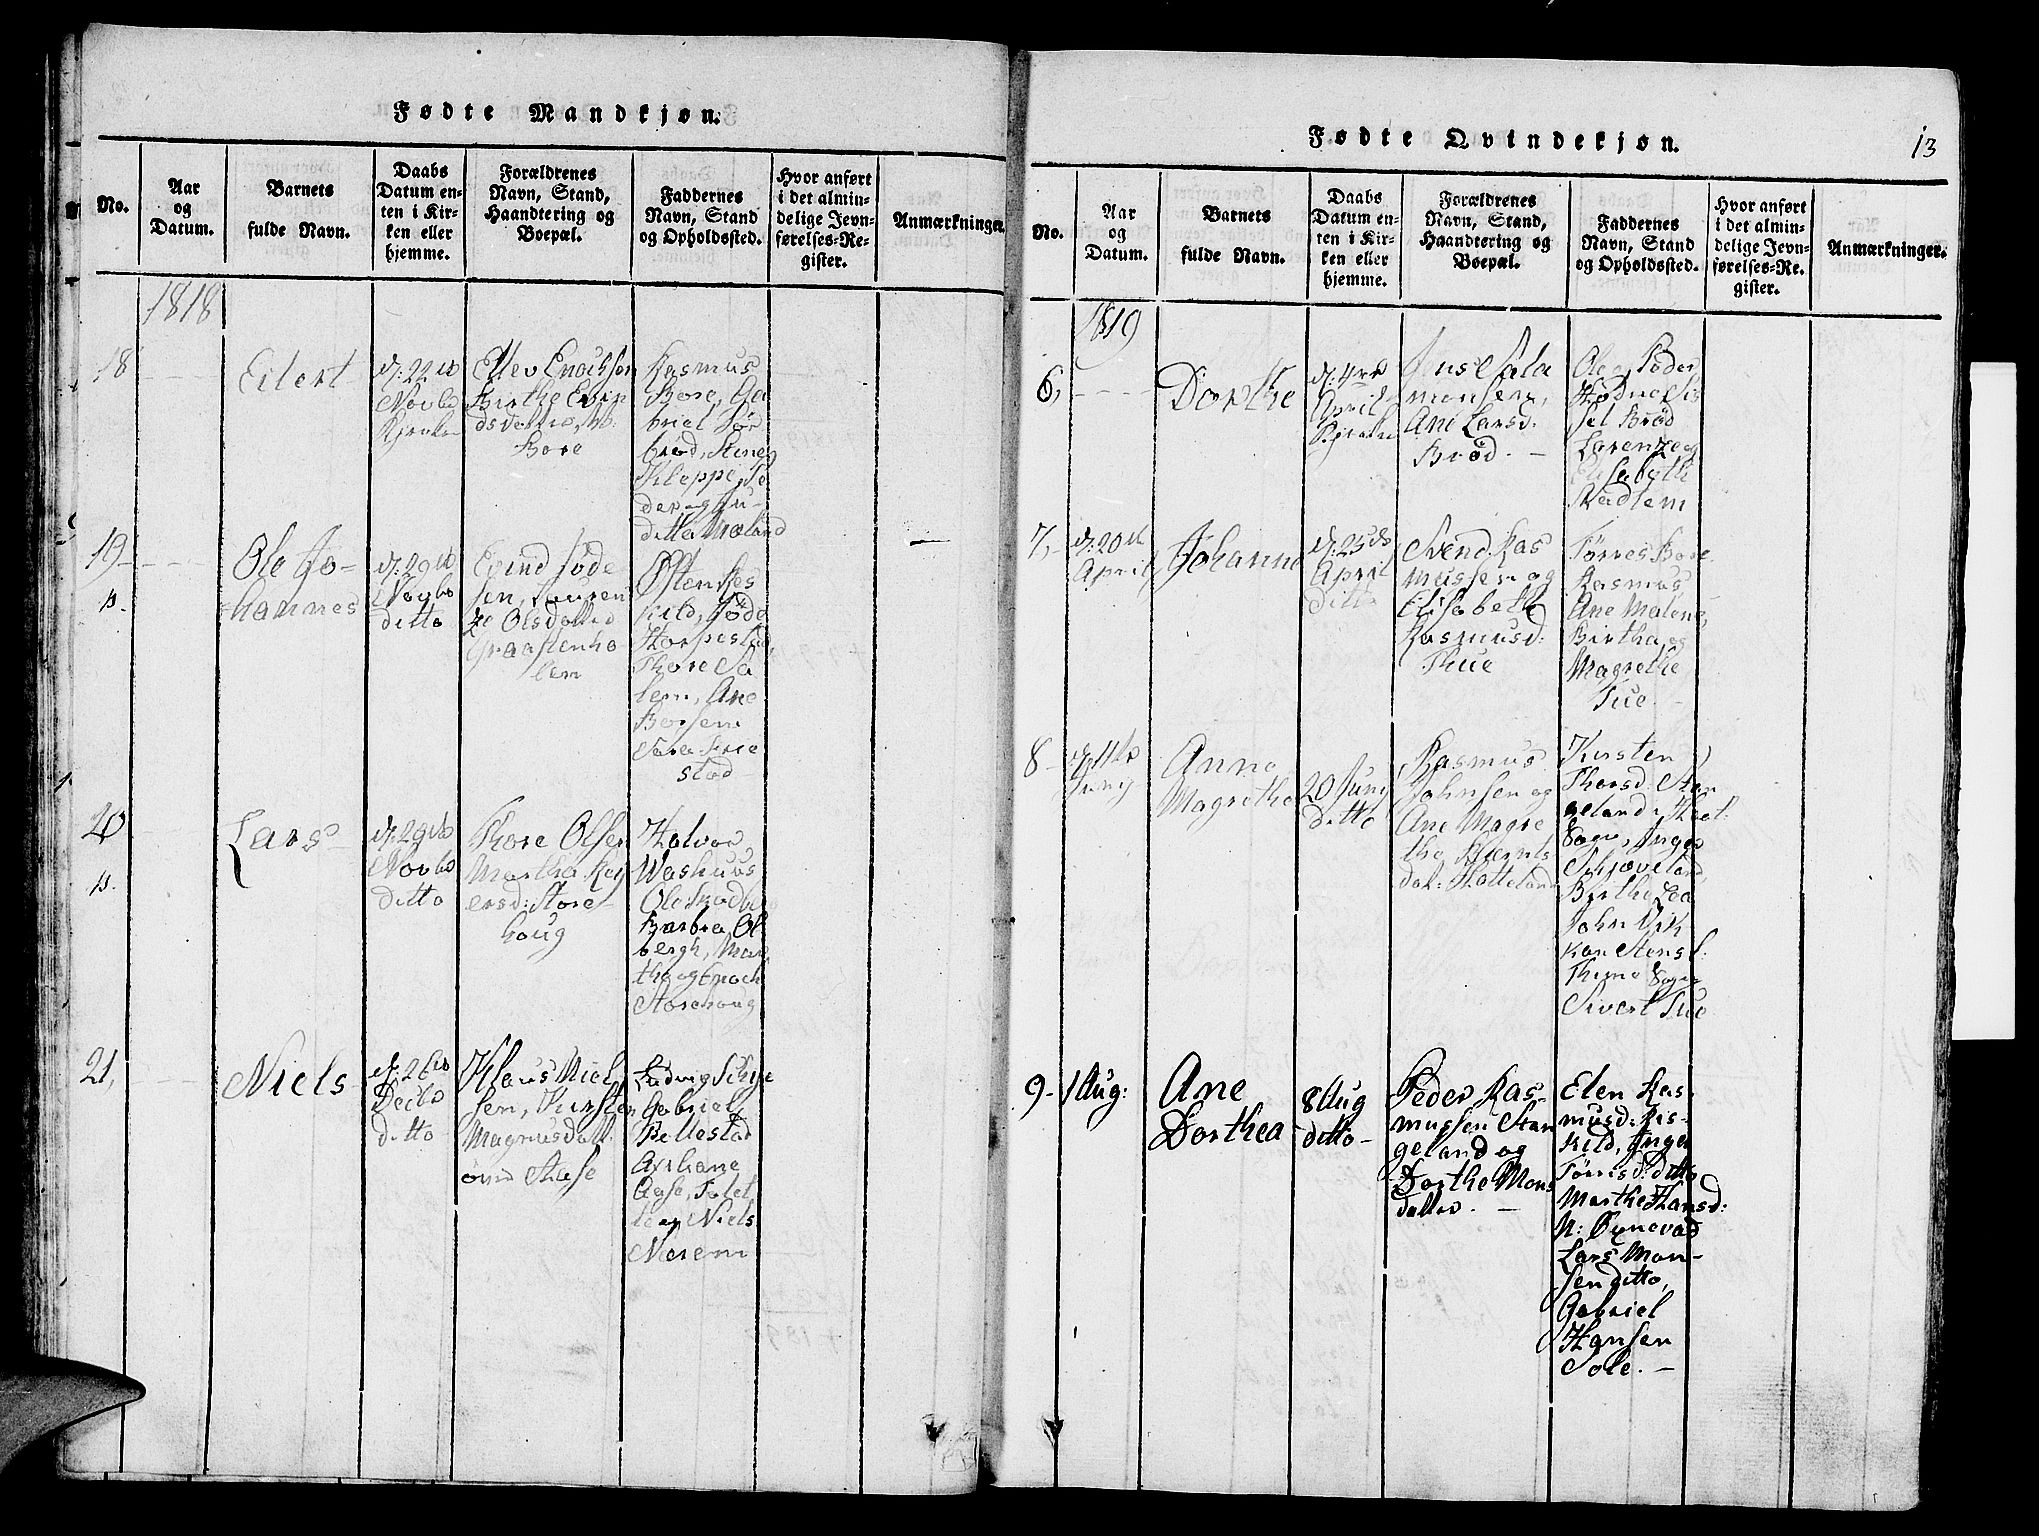 Fødte Mandkjøn.
No.
Aar
og
Datum.
Barnets
fulde Navn.
Daabs
Datum en-
ten i Kir-
ken eller
hjemme.
Forældrenes
Navn, Stand,
Haandtering og
Boepæl.
Faddernes
Navn, Stand
og Opholdssted.
Hvor anført
i det almin-
delige Jevn-
førelses-Re-
gister.
Anmærkninger.
1818
18
Eilert
d: 22
Novbr
Kirken
Ellev Enochsen
Birthe Evin
dsdatter, 
Bore
Rasmus
Bore, Ga
briel
Stine
Kleppe, Pe
der og Gu-
ditta Mæland
19
Ole Jo-
hannes
d: 29
Novbr
ditto
Evind Jøde
sen, Lauren
ze Olsdatter
Graasteenho
len
Østen Røs
kild, Jøde
Horpestad,
Thore Sa
lem, Ane
Borsem
Sara Sirie
stad
20
Lars
d: 29
Novbr
ditto
Thore Olsen
Martha Rey
ersd: Store
houg
Halvor
Washuus
Ole Skadberg
Barbra Ol
bergh, Mar
tha og Enoch
Storehoug
21,
Niels
d: 26
Decbr
ditto
Klaus Niel
sen, Kirsten
Magnusdatt:
øvre Stase
Ludvig Schye
Gabriel
Pellestad
Axliane
Aase, Tolet
Niels
Norem
Fødte Qvindekjøn.
13
No.
Aar
og
Datum.
Barnets
fulde Navn.
Daabs
Datum en-
ten i Kir-
ken eller
hjemme.
Forældrenes
Navn, Stand,
Haandtering og
Boepæl.
Faddernes
Navn, Stand
og Opholdssted.
Hvor anført
i det almin-
delige Jevn-
førelses-Re-
gister.
Anmærkninger.
1819
6,
Dorthe
d: 4
April
Kirken
Jens Sala
monsen,
Ane Larsd.
Brød.
Ole, Peder
Hodne Sis
sel Brød
Lorenze og
Elisabeth
Skadlem
7,
d: 20
April
Johanne
d: 25
April
ditto
Svend Ras
mussen og
Elisabeth
Rasmusd:
Thue
Tørres Bore
Rasmus,
Ane Malene,
Birtha, og
Magrethe
Tue.
8
d: 11
Juny
Anne
Magrethe
20 Juny
ditto
Rasmus
Johnsen og
Ane Magre
the Biørnls
dat: Hatteland
Kirsten
Thorsd. Stan
geland, Thoet:
Sogn, Inger
Schjæveland,
Birthe Lea
John Virk
kon Stensl:
Thime Sogn
Sivert Tue
9
1 Aug:
Ane
Dorthea
8 Aug
ditto
Peder Ras-
mussen Stan
geland og
Dorthe Mons
datter.
Elen Ras
musd: Røs-
kild, Inger
Tørrisd: ditto
Marthe Hansd:
N: Øxnevad
Lars Mon-
sen ditto,
Gabriel
Hansen
Sole.